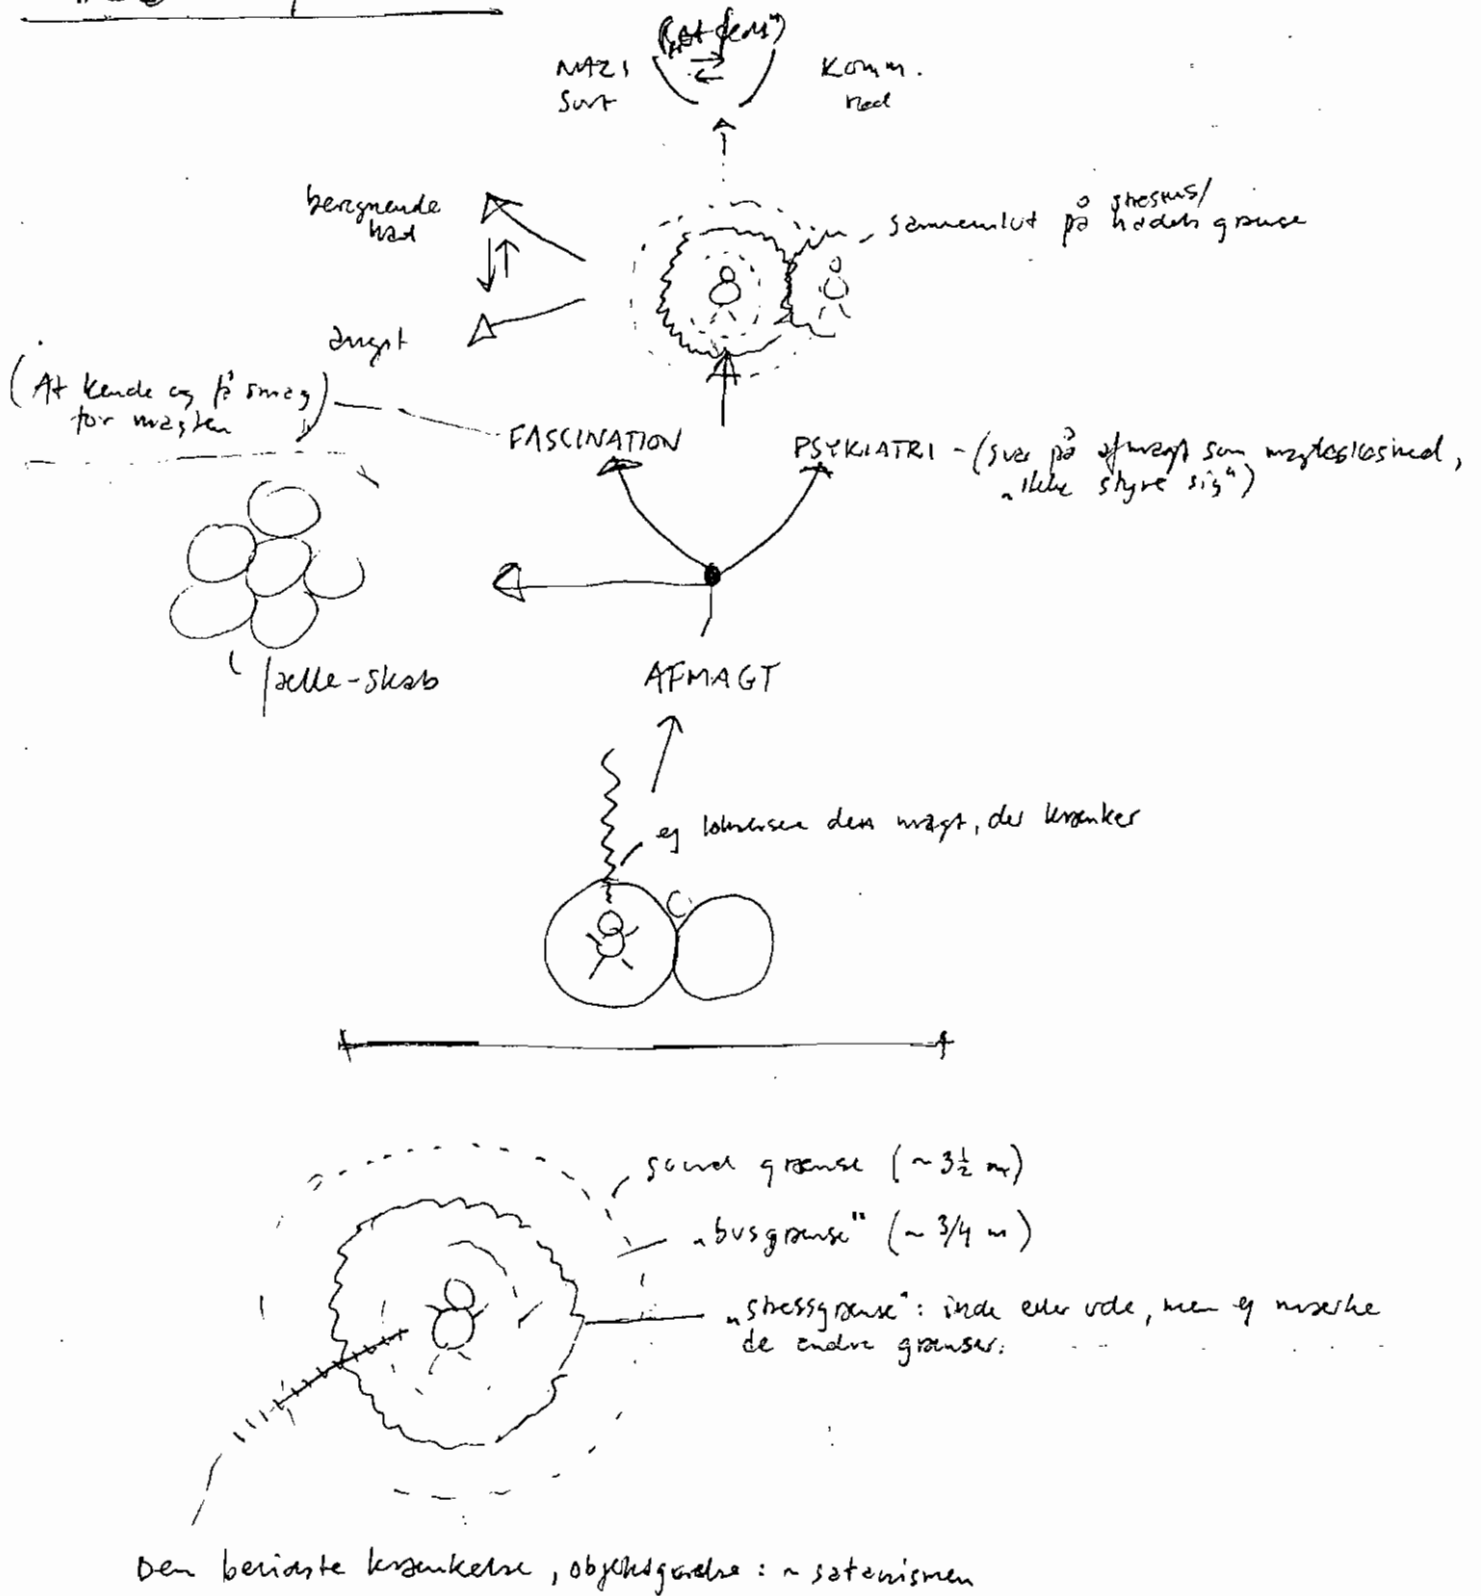 NAZI
Sort
Komm.
rød
beregnende
had
angst
sammenlut på stressens/
hadets grænse
(At kende og få smag)
for magten
FASCINATION
PSYKIATRI - (svar på afmagt som magtesløshed,
"ikke styre sig")
fælle-skab
AFMAGT
ej lokalisere den magt, der krænker
sund grænse (~ 3½ m)
"busgrænse" (~ 3/4 m)
"stressgrænse": inde eller ude, men ej mærke
de andre grænser.
Den bevidste krænkelse, objektgørelse: ~ satanismen